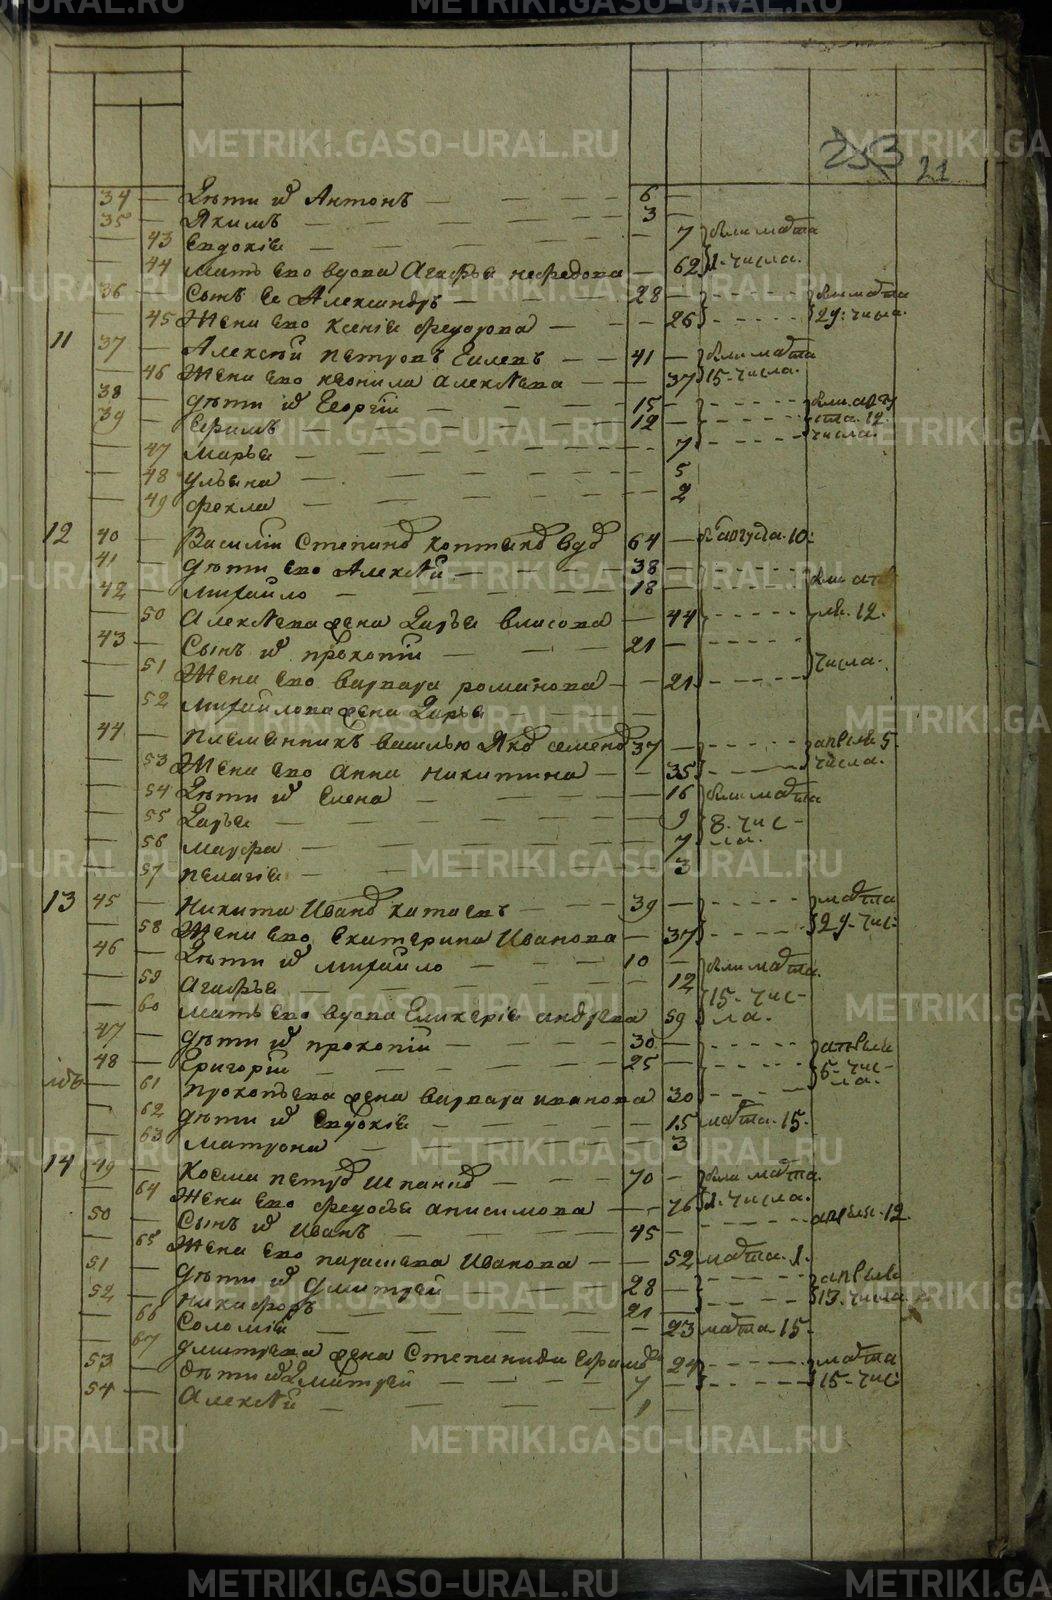 METRIKI.GASO-URAL.RU
253 21
34 — Дѣти их Антонъ — 6 —
35 — Якимъ — 3 —
— 43 Евдокіа — 7 были марта
— 44 мать его вдова Агафья нефедова — 62 1. числа.
36 — Сынъ ее Александръ — 28 — были марта
— 45 Жена его Ксеніа федотова — 26 29: числа.
11 37 — Алексѣй петровъ — 41 — были марта
— 46 Жена его неонила алексѣева — 37 15. числа.
38 — дѣти их Георгій — 15
39 — Ефимъ — 12 — 12
— 47 Марьа — 7 числа.
— 48 ульяна — 5
— 49 фекла — 2
12 40 — Василій Степанов вдов 64 — августа. 10:
41 — дѣти его Алексѣй — 38 —
42 — михайло — 18
— 50 Алексѣева жена Дарьа власова — 44 12.
43 — Сынъ их прокопій — 21 —
— 51 Жена его варвара романова — 21 числа.
— 52 михайлова жена Дарьа
44 — племянникъ василью Яков семенов 37 — апреля 5.
— 53 Жена его анна никитина — 35 числа.
— 54 Дѣти их Елена — 16 были марта
— 55 Дарьа — 9 8. чис-
— 56 марфа — 7 ла.
— 57 пелагіа — 3
13 45 — Никита Иванов катаевъ — 39 — марта
— 58 Жена его Екатерина Иванова — 37 29. чис:
46 — Дѣти их михайло — 10 — были марта.
— 59 Агафьа — 12 15. чис-
— 60 мать его вдова Гликеріа андреева 59 ла.
47 — дѣти их прокопій — 30 — апреля
48 — Григорій — 25 — 5. чис-
— 61 прокопьева жена варвара иванова 30 ла.
— 62 дѣти их Евдокіа — 15 марта. 15.
— 63 матрона — 3
14 49 — Косма петров — 70 — были марта.
— 64 Жена его федосьа анисимова — 76 1. числа.
50 — Сынъ их Иванъ — 45 — апреля. 12.
— 65 Жена его парасковьа Иванова — 52 марта. 1.
51 — дѣти их дмитрей — 28 — апреля
52 — никифоръ — 21 — 13. числа
— 66 Соломіа — 23 марта 15.
— 67 дмитреева жена Степанида Ефимова 29 марта
53 — дѣти их Дмитрей — 7 — 15. чис:
54 — Алексѣй — 1 —